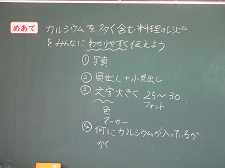 めあて
カルシウムを多く含む料理のレシピ
をみんなにわかりやすく伝えよう
① 写真
② 見出し+小見出し
③ 文字大きく 25~30
フォント
色
マーカー
④ 何にカルシウムが入っているか
かく